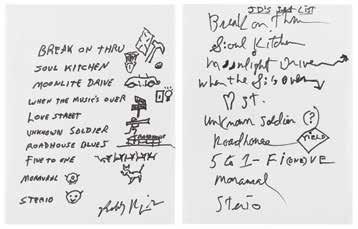 BREAK ON THRU
SOUL KITCHEN
MOONLITE DRIVE
WHEN THE MUSIC'S OVER
LOVE STREET
UNKNOWN SOLDIER
ROADHOUSE BLUES
FIVE TO ONE
STERIO
JD'S SET LIST
Break on Thru
Soul Kitchen
Moonlight Drive
When the
ST.
Unknown Soldier (?)
Roadhouse
YIELD
5 to 1 - Fi(one)VE
Sterio